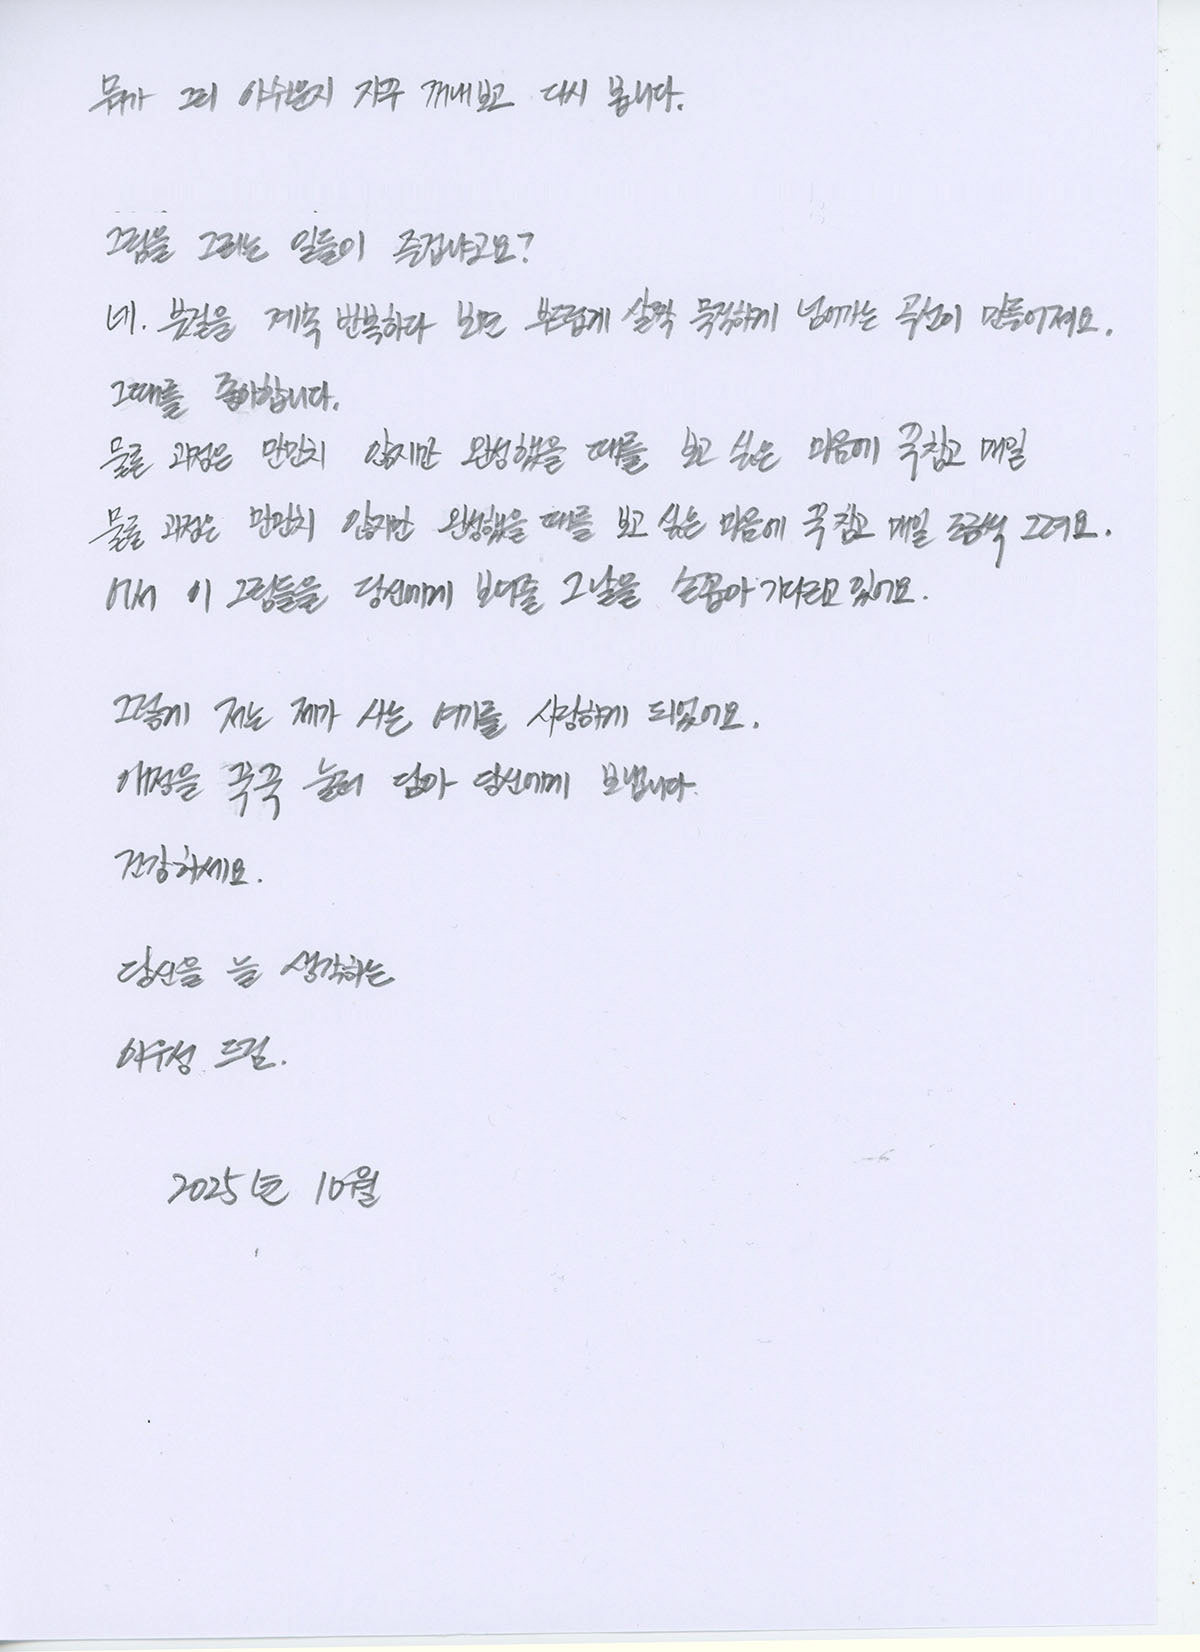 뭐가 그리 아쉬운지 자꾸 꺼내보고 다시 봅니다.
그림을 그리는 일들이 즐겁냐고요?
네. 붓질을 계속 반복하다 보면 부드럽게 살짝 묵직하게 넘어가는 곡선이 만들어져요.
그때를 좋아합니다.
물론 과정은 만만치 않지만 완성했을 때를 보고 싶은 마음에 꾹참고 매일
물론 과정은 만만치 않지만 완성했을 때를 보고 싶은 마음에 꾹 참고 매일 조금씩 그려요.
어서 이 그림들을 당신에게 보여줄 그날을 손꼽아 기다리고 있어요.
그렇게 저는 제가 사는 여기를 사랑하게 되었어요.
애정을 꾹꾹 눌러 담아 당신에게 보냅니다.
건강하세요.
당신을 늘 생각하는
드림.
2025년 10월